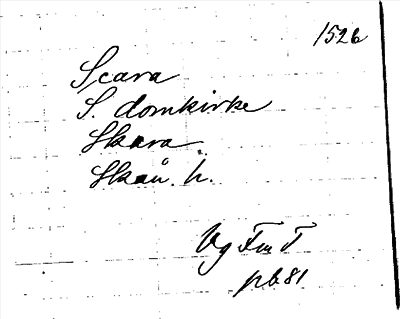 1526
Scara
S. domkirke
Skara.
Skån. h.
Vg Fm T
pl. 81